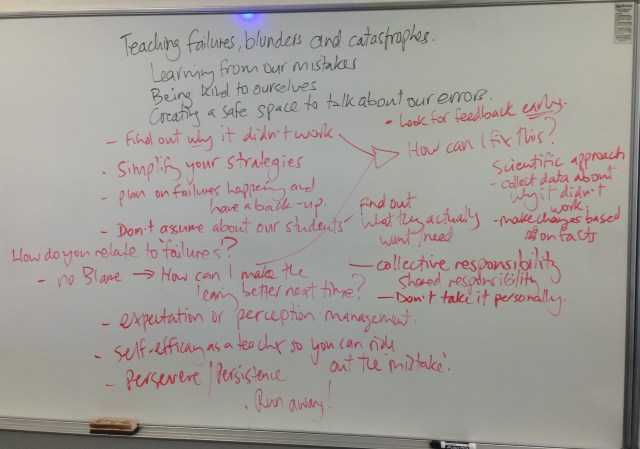 Teaching failures, blunders and catastrophes.
Learning from our mistakes
Being kind to ourselves
Creating a safe space to talk about our errors.
- Find out why it didn't work
- Simplify your strategies
- plan on failures happening and
have a back-up.
- Don't assume about our students
Find out
what they actually
want/need
- Look for feedback early.
How can I fix this?
Scientific approach
- collect data about
why it didn't
work.
- make changes based
on facts
How do you relate to 'failures'?
- no Blame → How can I make the
learing better next time?
- collective responsibility
shared responsibility
- Don't take it personally.
- expectation or perception management.
- self-efficacy as a teacher so you can ride
out the 'mistake'.
- Persevere / Persistence
. Run away!